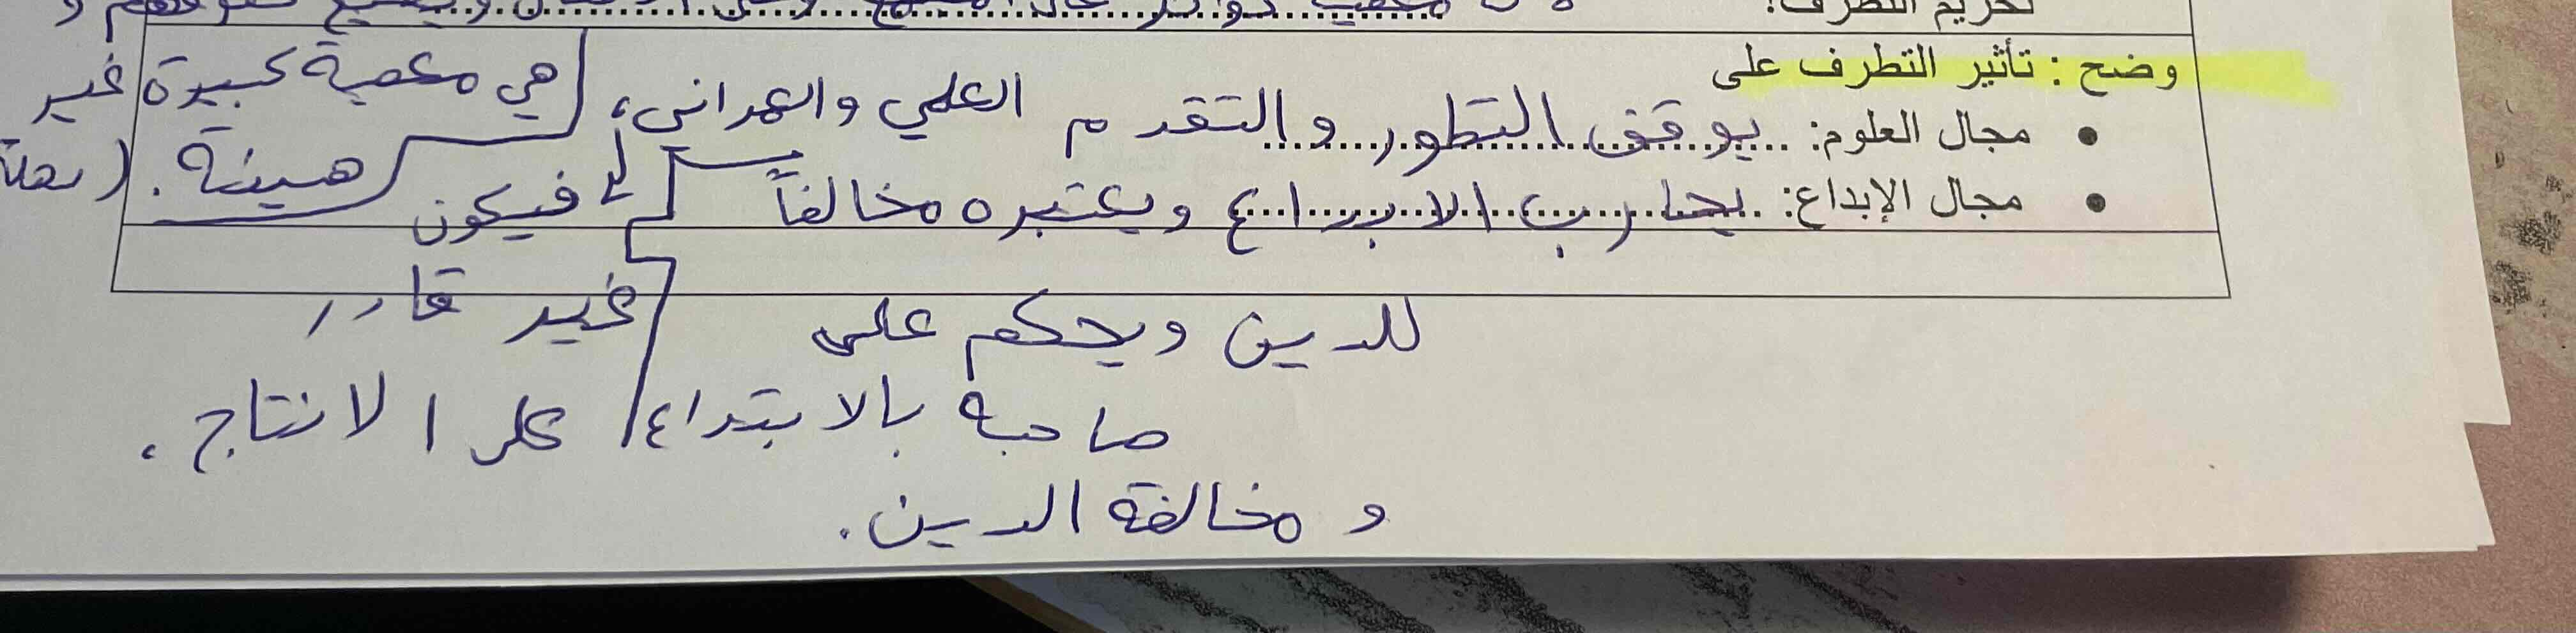 تحريم التطرف:
وضح : تأثير التطرف على
هي معصية كبيرة غير
هينة.
• مجال العلوم: يوقف التطور والتقدم العلمي والعمراني،
فيكون
غير قادر
على الانتاج.
• مجال الإبداع: يحارب الابداع ويعتبره مخالفاً
للدين ويحكم على
صاحبه بالابتداع
ومخالفة الدين.